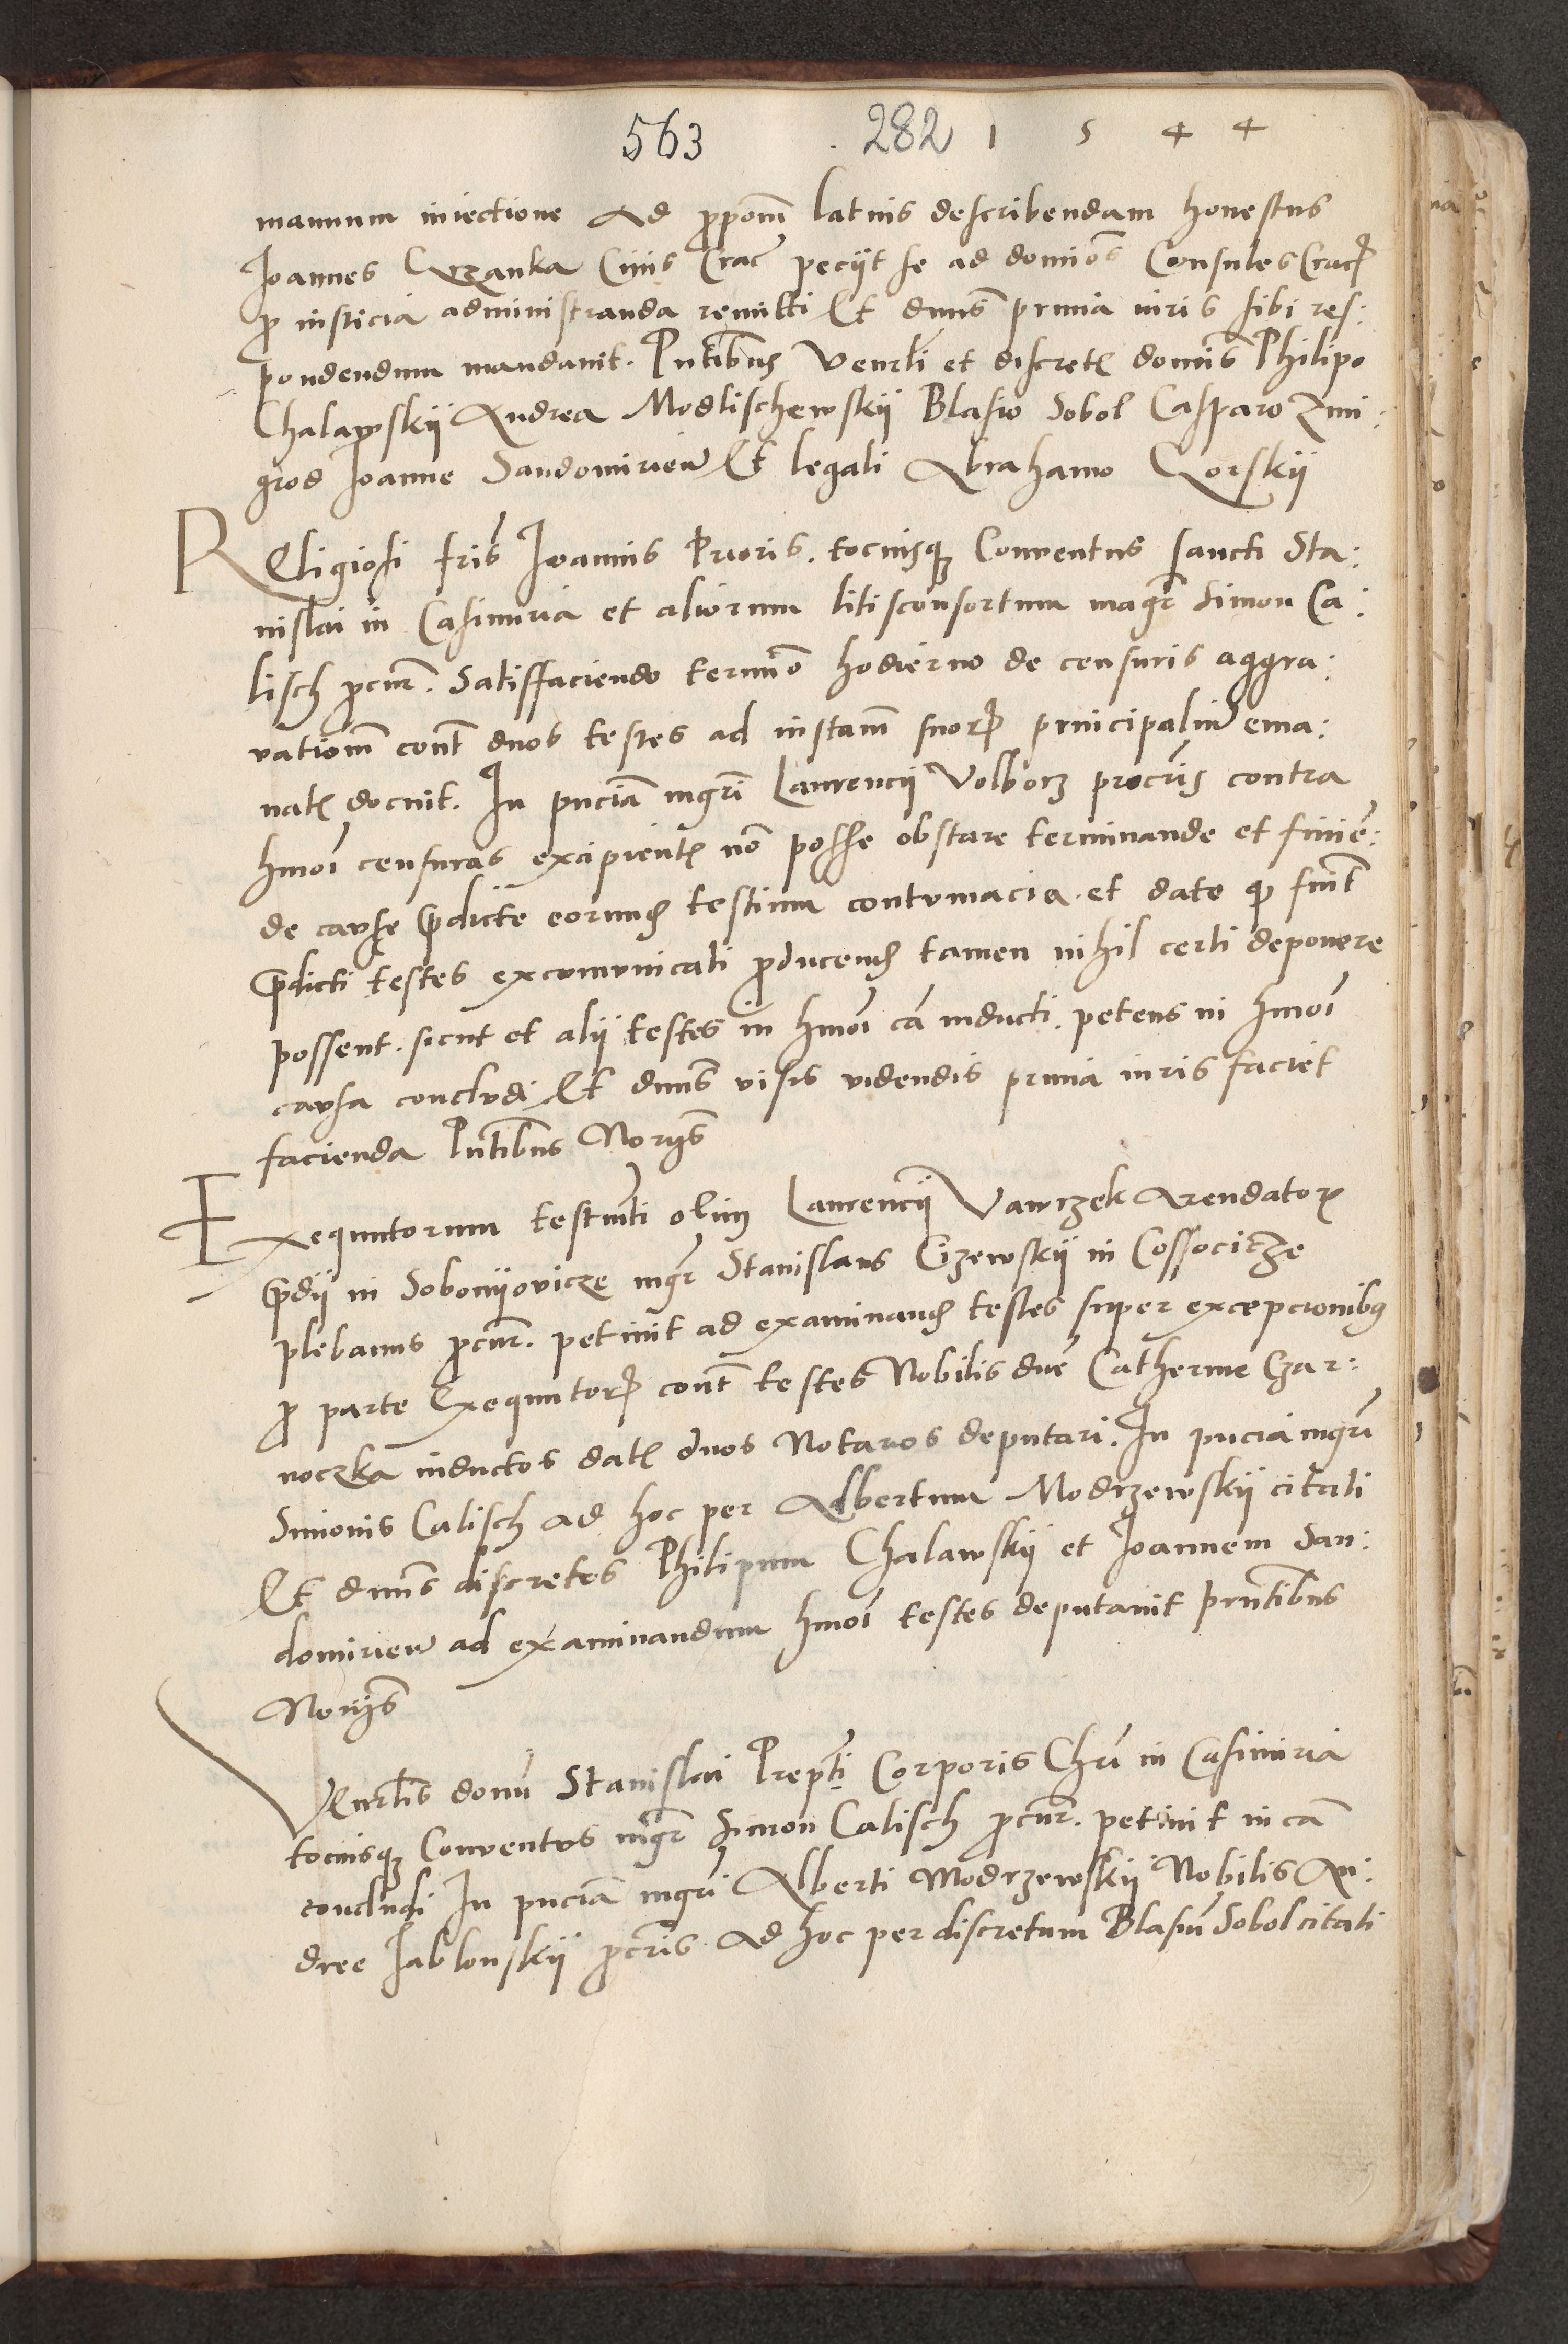 563 282 1 5 4 4
manuum iniectione ad ꝓpom̃ latius describendam honestus
Joannes Grzanka Ciuis Crac̃ peciit se ad domiõs Consules Cracꝝ
ꝓ iusticia administranda remitti Et dnus̃ premia iuris sibi res:
pondendum mandauit. Pñtibus Venrli et discretꝭ domis̃ Philipo
Chalawskij Andrea Modlischewskij Blasio Sobol Casparo Zmi:
grod Joanne Sandomirień Et legali Abrahamo Gorskij
Religiosi fris̃ Joannis Prioris. tociusqꝫ Conuentus sancti Sta:
nislai in Casimiria et aliorum litisconsortum magr̃ Simon Ca:
lisch ꝓcur̃. Satisfaciendo termiõ hodierno de censuris aggra:
vatiom̃ cont̃ duos testes ad instam̃ suorꝝ principaliũ ema:
natꝭ docuit. In pñciã mgrĩ Laurencij Volborz procris̃ contra
hmoĩ censuras excipientꝭ nõ posse obstare terminande et finiẽ:
de cause p̃dicte eorundꝭ testium contumacia. et dato qꝫ sint̃
p̃dicti testes excomunicati ꝓducendꝭ tamen nihil certi deponere
possent. sicut et alij testes in hmoĩ cã inducti. petens in hmoĩ
causa concludi Et dnus̃ visis videndis premia iuris faciet
facienda Pñtibus Norijs̃
Exequutorum testm̃ti olim Laurencij Vawrzek Arendatorꝭ
p̃dij in Soboniovicze mgr̃ Stanislaus Gizewskij in Cossocicze
plebanus ꝓcur̃. petiuit ad examinandꝭ testes super excepcionibꝫ
ꝓ parte Exequutorꝝ cont̃ testes Nobilis dnẽ Catherine Czar:
noczka inductos datꝭ duos Notarios deputari. In pñcia mgrĩ
Simonis Calisch ad hoc per Albertum Modrzewskij citati
Et dnus̃ discretos Philipum Chalawskij et Joannem San:
domirień ad examinandum hmoĩ testes deputauit prñtibus
Norijs̃
Venrlis̃ domĩ Stanislai Prep̃ti Corporis Chrĩ in Casimiria
tociusqꝫ Conuentus mgr̃ Simon Calisch ꝓcur̃. petiuit in cã
concludi In pñciã mgrĩ Alberti Modrzewskij Nobilis An:
dree Jablonskij ꝓcris̃ ad hoc per discretum Blasiũ Sobol citati